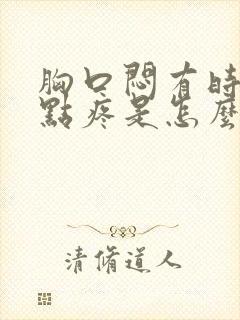 胸口悶有時
點疼是怎麼
清脩道人